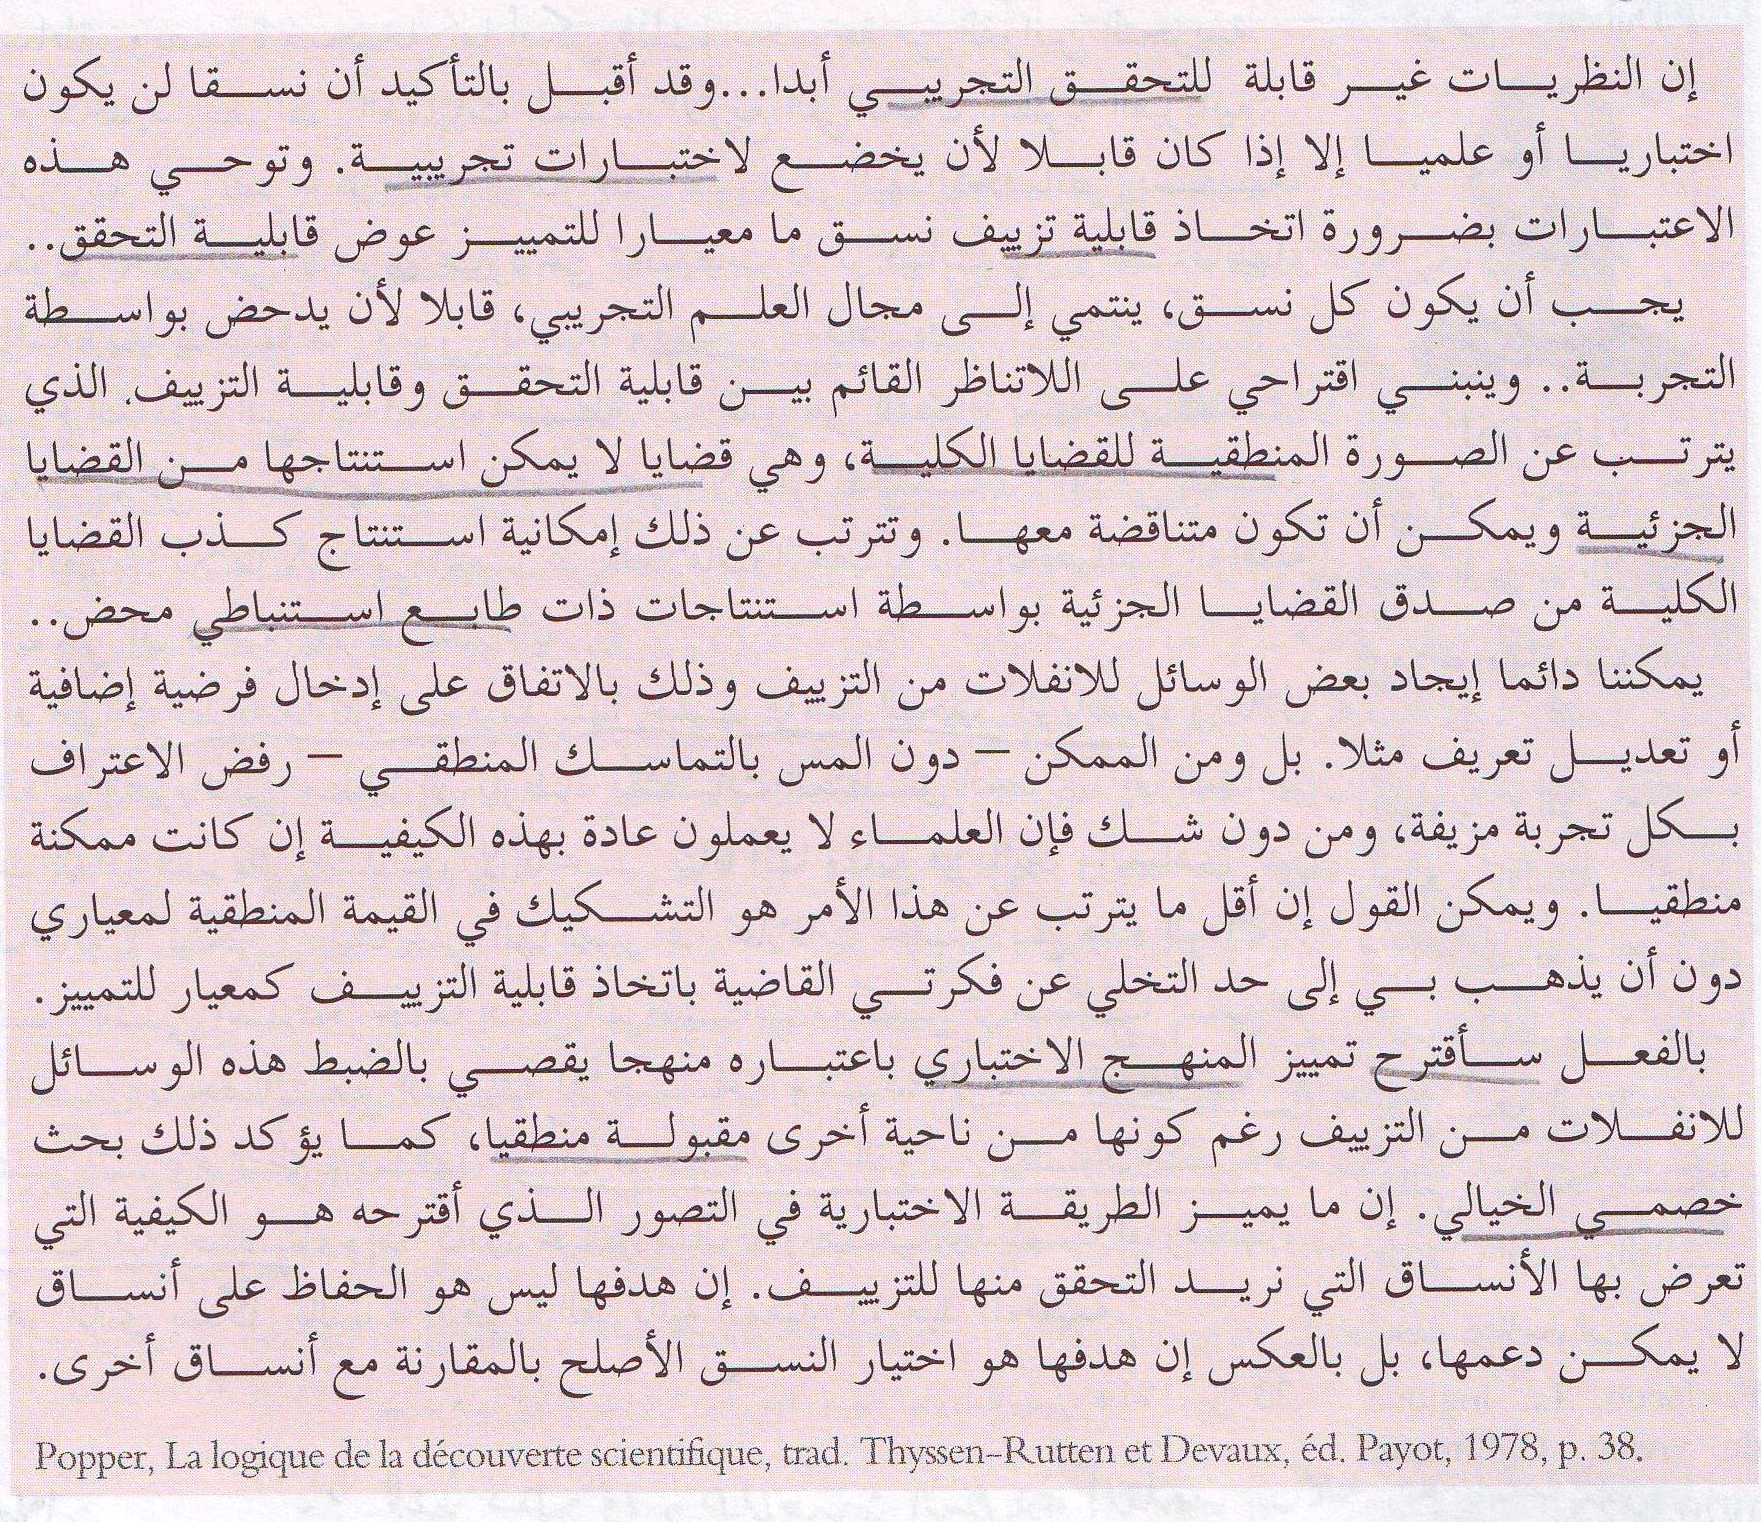 إن النظريات غير قابلة للتحقق التجريبي أبدا...وقد أقبل بالتأكيد أن نسقا لن يكون
اختباريا أو علميا إلا إذا كان قابلا لأن يخضع لاختبارات تجريبية. وتوحي هذه
الاعتبارات بضرورة اتخاذ قابلية تزييف نسق ما معيارا للتمييز عوض قابلية التحقق..
يجب أن يكون كل نسق، ينتمي إلى مجال العلم التجريبي، قابلا لأن يدحض بواسطة
التجربة.. وينبني اقتراحي على اللاتناظر القائم بين قابلية التحقق وقابلية التزييف. الذي
يترتب عن الصورة المنطقية للقضايا الكلية، وهي قضايا لا يمكن استنتاجها من القضايا
الجزئية ويمكن أن تكون متناقضة معها. وتترتب عن ذلك إمكانية استنتاج كذب القضايا
الكلية من صدق القضايا الجزئية بواسطة استنتاجات ذات طابع استنباطي محض..
يمكننا دائما إيجاد بعض الوسائل للانفلات من التزييف وذلك بالاتفاق على إدخال فرضية إضافية
أو تعديل تعريف مثلا. بل ومن الممكن – دون المس بالتماسك المنطقي – رفض الاعتراف
بكل تجربة مزيفة، ومن دون شك فإن العلماء لا يعملون عادة بهذه الكيفية إن كانت ممكنة
منطقيا. ويمكن القول إن أقل ما يترتب عن هذا الأمر هو التشكيك في القيمة المنطقية لمعياري
دون أن يذهب بي إلى حد التخلي عن فكرتي القاضية باتخاذ قابلية التزييف كمعيار للتمييز.
بالفعل سأقترح تمييز المنهج الاختباري باعتباره منهجا يقصي بالضبط هذه الوسائل
للانفلات من التزييف رغم كونها من ناحية أخرى مقبولة منطقيا، كما يؤكد ذلك بحث
خصمي الخيالي. إن ما يميز الطريقة الاختبارية في التصور الذي أقترحه هو الكيفية التي
تعرض بها الأنساق التي نريد التحقق منها للتزييف. إن هدفها ليس هو الحفاظ على أنساق
لا يمكن دعمها، بل بالعكس إن هدفها هو اختيار النسق الأصلح بالمقارنة مع أنساق أخرى.
Popper, La logique de la découverte scientifique, trad. Thyssen-Rutten et Devaux, éd. Payot, 1978, p. 38.